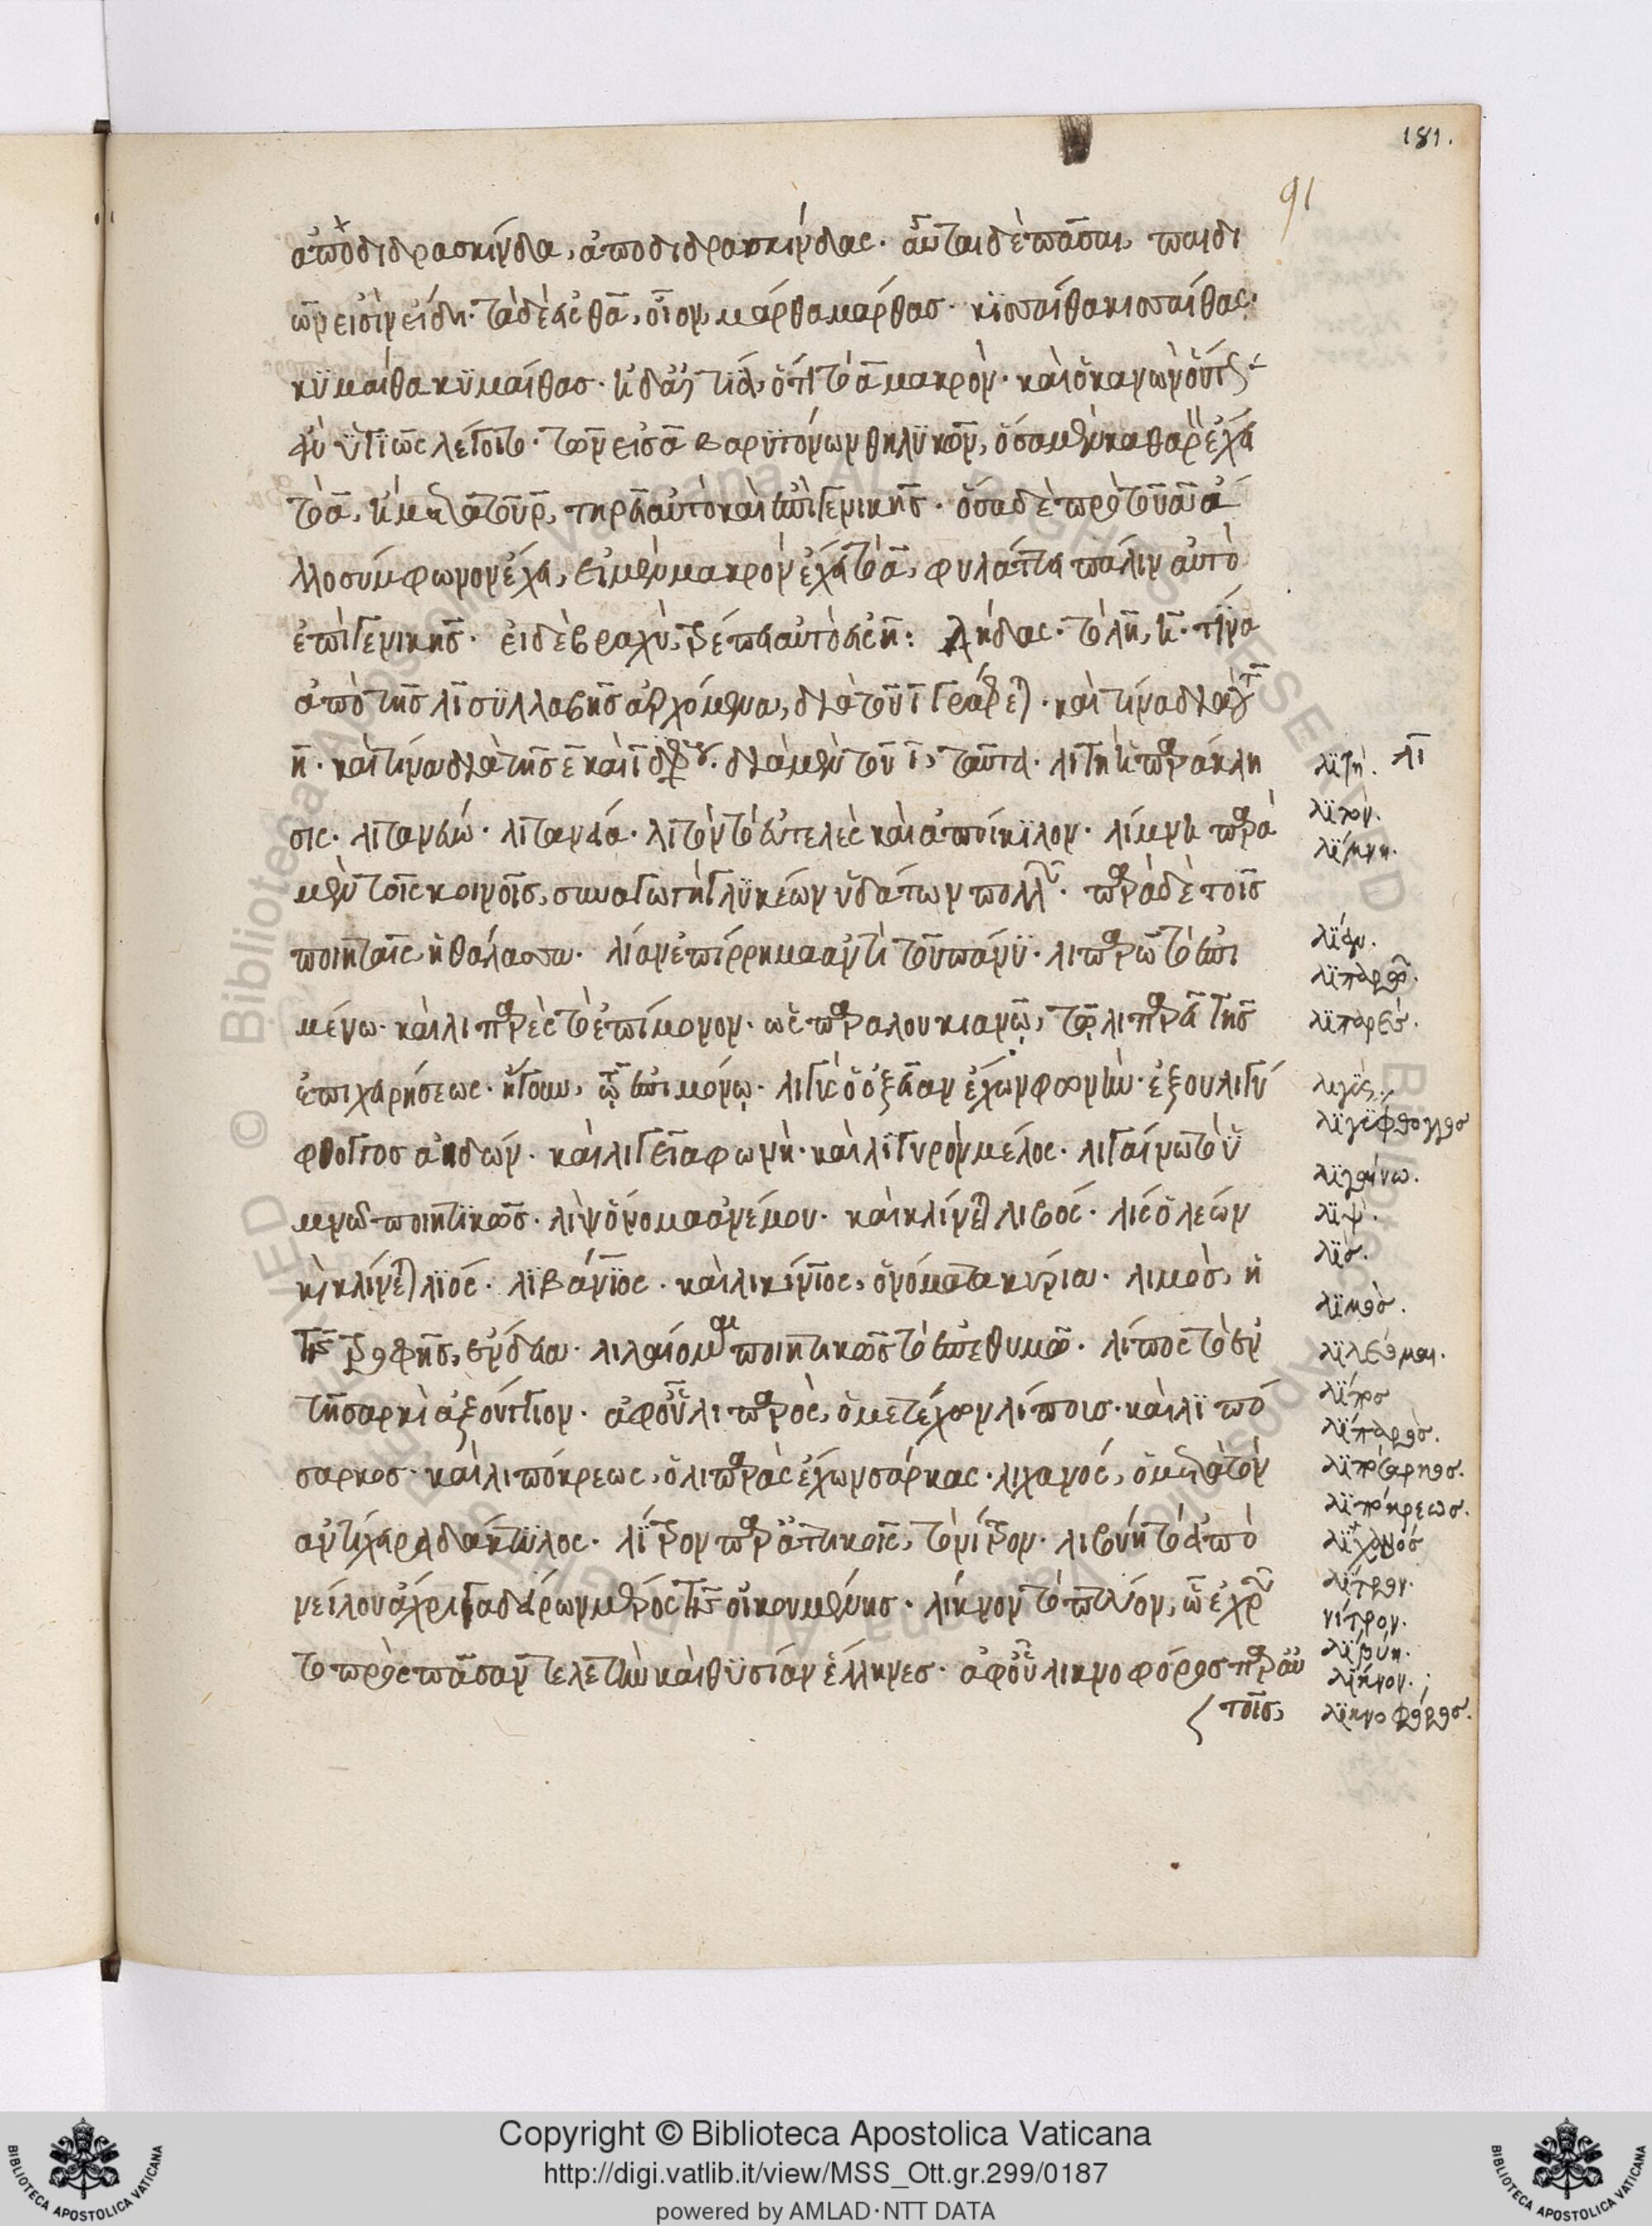 181.
91
ἀποδιδρασκίνδα, ἀποδιδρασκίνδας. αὗται δὲ πᾶσαι, παιδι
ῶν εἰσὶν εἴδη. τὰ δὲ εἰς θα, οἷον, μάρθα μάρθας. κισσαίθα κισσαίθας.
κυμαίθα κυμαίθας. ὅτι τὸ α μακρόν. καὶ ὁ κανὼν
λέγοιτο. τῶν εἰς α βαρυτόνων θηλυκῶν, ὅσα μὲν καθαρὸν ἔχει
τὸ α, ἢ μετὰ τοῦ ρ, τηρεῖ αὐτὸ καὶ ἐπὶ γενικῆς. ὅσα δὲ πρὸ τοῦ α ἄ
λλο σύμφωνον ἔχει, εἰ μὲν μακρὸν ἔχει τὸ α, φυλάττει πάλιν αὐτὸ
ἐπὶ γενικῆς. εἰ δὲ βραχὺ, τρέπει αὐτὸ εἰς η: λήδας. τὸ λη, η. τίνα
ἀπὸ τῆς λι συλλαβῆς ἀρχόμενα, διὰ τοῦ ι γράφεται. καὶ τίνα διὰ τοῦ
η. καὶ τίνα διὰ τῆς ε καὶ ι διφθόγγου. διὰ μὲν τοῦ ι, ταῦτα. λιτὴ ἡ παράκλη
σις. λιτανεύω. λιτανεία. λιτὸν τὸ εὐτελὲς καὶ ἀποίκιλον. λίμνη παρὰ
μὲν τοῖς κοινοῖς, συναγωγὴ γλυκέων ὑδάτων πολλῶν. παρὰ δὲ τοῖς
ποιηταῖς ἡ θάλασσα. λίαν ἐπίρρημα ἀντὶ τοῦ πάνυ. λιπαρῶ τὸ ἐπι
μένω. καὶ λιπαρὲς τὸ ἐπίμονον. ὡς παρὰ λουκιανῷ, τῷ λιπαρεῖ τῆς
ἐπιχειρήσεως. ἤγουν, τῷ ἐπιμόνῳ. λιγὺς ὁ ὀξεῖαν ἔχων φωνήν. ἐξ οὗ λιγύ
φθογγος ἀηδών. καὶ λιγεῖα φωνή. καὶ λιγυρὸν μέλος. λιγαίνω τὸ ὑ
μνῶ ποιητικῶς. λὶψ ὄνομα ἀνέμου. καὶ κλίνεται λιβός. λὶς ὁ λέων
καὶ κλίνεται λιός. λιβάνιος. καὶ λικίνιος, ὀνόματα κύρια. λιμὸς, ἡ
τῆς τροφῆς ἔνδεια. λιλαίομαι ποιητικῶς τὸ ἐπιθυμῶ. λίπος τὸ ἐν
τῇ σαρκὶ ἀξούγγιον. ἀφ' οὗ λιπαρὸς, ὁ μετέχων λίπους. καὶ λιπό
σαρκος. καὶ λιπόκρεως, ὁ λιπαρὰς ἔχων σάρκας. λιχανός, ὁ μετὰ τὸν
ἀντίχειρα δάκτυλος. λίτρον παρ' ἀττικοῖς, τὸ νίτρον. λιβύη τὸ ἀπὸ
νείλου ἄχρι γαδείρων μέρος τῆς οἰκουμένης. λίκνον τὸ πτύον, ᾧ ἐχρῶν
το πρὸς πᾶσαν τελετὴν καὶ θυσίαν ἕλληνες. ἀφ' οὗ λικνοφόρος παρ' αὐ
τοῖς,
λιτή. λι
λιτόν.
λίμνη.
λίαν.
λιπαρῶ.
λιπαρές.
λιγύς.
λιγύφθογγος
λιγαίνω.
λίψ.
λίς.
λιμός.
λιλαίομαι.
λίπος
λιπαρός.
λιπόσαρκος.
λιπόκρεως.
λιχανός
λίτρον.
νίτρον.
λιβύη.
λίκνον.
λικνοφόρος.
© Biblioteca Apostolica Vaticana ALL RIGHTS RESERVED
Copyright © Biblioteca Apostolica Vaticana
http://digi.vatlib.it/view/MSS_Ott.gr.299/0187
powered by AMLAD·NTT DATA
BIBLIOTECA APOSTOLICA VATICANA
BIBLIOTECA APOSTOLICA VATICANA